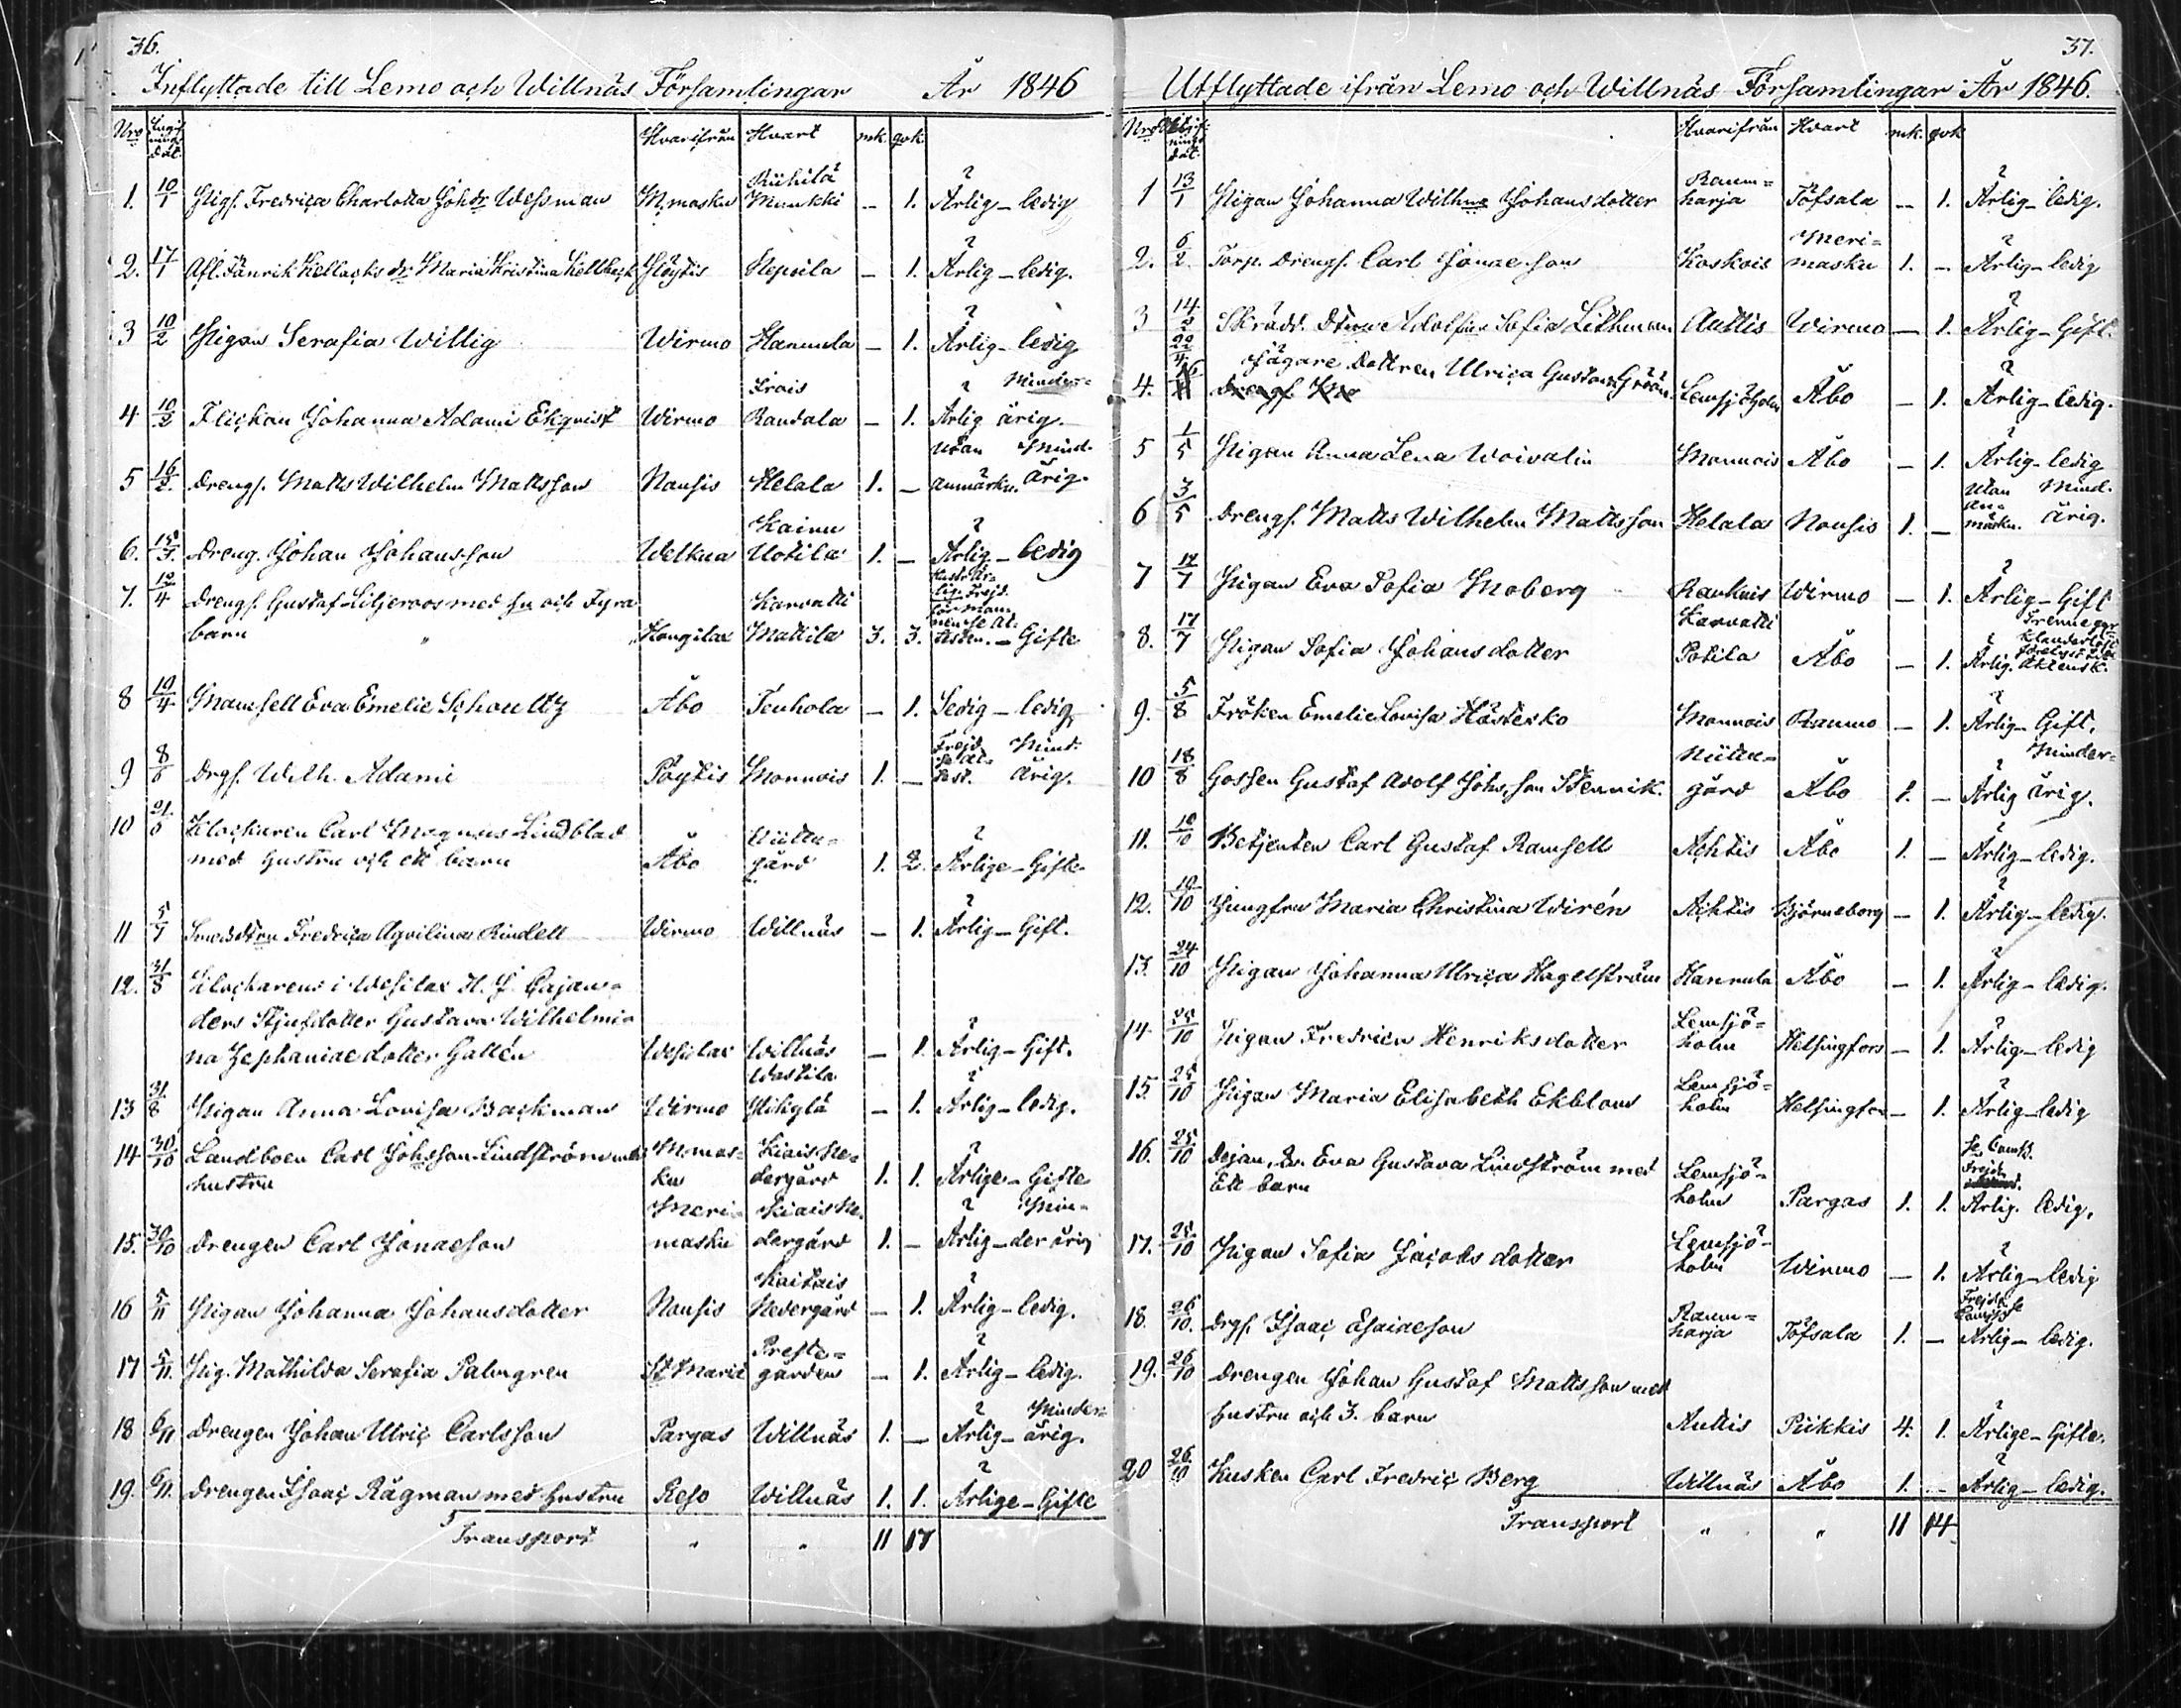 36.
Inflyttade till Lemo och Willnäs Församlingar År 1846
Nro dat. Hvarifrån Hvart mk. qvk.
Riihilä
1. 10/1 Pigs. Fredrica Charlotta Johdr Wessman M.masku Munkki – 1. Ärlig – ledig
2. 17/1 Afl. Fänrik dr Maria Kristina Pöytis – 1. Ärlig – ledig.
3 10/2 Pigan Serafia Willig Wirmo Hannula – 1. Ärlig – ledig
Irais Minder=
4 10/2 Flickan Johanna Adami Ekqvist Wirmo Randala – 1. Ärlig årig.
utan Mind.
5 16/2. Drengs. Matts Wilhelm Mattsson Nousis Helala 1. – anmärkn. årig.
Kainu
6. 15/3. Dreng. Johan Johansson Welkua Uotila 1. – Ärlig – ledig
7. 12/4 Drengs. Gustaf Liljeroos med hu och Fyra Karvatti
barn " Kougilax Mattila 3. 3. – Gifte
8 19/4 Mamsell Eva Emelie Schoultz Åbo Tenhola – 1. Sedig – ledig
Frejd Mind.
9 8/6 Drgs. Wilh. Adami Pöytis Monnois 1. – årig.
10 21/6 Klockaren Carl Magnus Lindblad Niittu=
med hustru och ett barn Åbo gård 1. 2. Ärlige – Gifte
11 5/7 Smedstrn Fredrica Aqvilina Rindell Wirmo Willnäs – 1. Ärlig – Gift.
12. 31/8 Klockarens i Wesilax H. J. Cajan=
ders Stjufdotter Gustava Wilhelmi=
na Zephaniae dotter Gallén Wesilax Willnäs – 1. Ärlig – Gift.
Wastila
13 31/8 Pigan Anna Lovisa Backman Wirmo Ylikylä – 1. Ärlig – ledig.
14 30/10 Landboen Carl Johsson Lindström med M.mas= Kiais Ne=
hustru ku dergård 1. 1. Ärlige – Gifte
Meri= Kiais Ne. Min=
15. 30/10 Drengen Carl Jonaeson masku dergård 1. – Ärlig – der årig
Kaitais
16 5/11 Pigan Johanna Johansdotter Nousis Nedergård – 1. Ärlig – ledig.
Preste=
17 5/11. Pig. Mathilda Serafia Palmgren St Marie gården – 1. Ärlig – ledig.
Minder=
18 6/11 Drengen Johan Ulric Carlsson Pargas Willnäs 1. – Ärlig – årig.
19. 6/11. Drengen Isaac Rågman med hustru Reso Willnäs 1. 1. Ärlige – Gifte
Transport " " 11 17
37.
Utflyttade ifrån Lemo och Willnäs Församlingar År 1846.
Nro dat. Hvarifrån Hvart mk. qvk
Raum=
1 13/1 Pigan Johanna Wilhna Johansdotter harja Töfsala – 1. Ärlig – ledig.
Meri=
2. 6/2 Torp. Drengs. Carl Jonaeson Koskois masku 1. – Ärlig – ledig
3 14/2 Skrädd. Dtrn Adolfina Sofia Lithman Auttis Wirmo – 1. Ärlig – Gift.
22/4 Jägare Dottren Ulrica Gustava Grön
4. Drengs. Lemsjöholm Åbo – 1. Ärlig – ledig.
5 1/5 Pigan Anna Lena Woivalin Monnois Åbo – 1. Ärlig – ledig
utan Mind.
an=
6 3/5 Drengs. Matts Wilhelm Mattsson Helala Nousis 1. – märkn. årig.
7 17/7 Pigan Eva Sofia Moberg Raukuis Wirmo – 1. Ärlig – Gift
Karvatti
8. 17/7 Pigan Sofia Johansdotter Potila Åbo – 1. Ärlig.
9. 5/8 Fröken Emelie Lovisa Hästesko Monnois Raumo – 1. Ärlig – Gift.
Niittu= Minder=
10 18/8 Gossen Gustaf Adolf Johsson Stennik. gård Åbo 1. – Ärlig årig.
11. 10/10 Betjenten Carl Gustaf Ramsell Achtis Åbo 1. – Ärlig – ledig.
12. 10/10 Jungfru Maria Christina Wirén Achtis Björneborg – 1. Ärlig – ledig.
13. 24/10 Pigan Johanna Ulrica Hagelström Hannula Åbo – 1. Ärlig – ledig.
Lemsjö=
14 25/10 Pigan Fredrica Henriksdotter holm Helsingfors – 1. Ärlig – ledig
Lemsjö=
15. 25/10 Pigan Maria Elisabeth Ekblom holm Helsingfors – 1. Ärlig – ledig
16. 25/10 Dejan, Eva Gustava Lindström med Lemsjö=
Ett barn holm Pargas 1. 1. Ärlig. ledig.
Lemsjö=
17. 25/10 Pigan Sofia Jacobsdotter holm Wirmo – 1. Ärlig – ledig
Raum= Frejd
18. 26/10. Drgs. Isaac Esaiaeson harja Töfsala 1. – Ärlig – ledig.
19. 26/10 Drengen Johan Gustaf Mattsson med
hustru och 3. barn Auttis Piikkis 4. 1. Ärlige – Gifte.
20 26/10 Kusken Carl Fredric Berg Willnäs Åbo 1. – Ärlig – ledig.
Transport " " 11 14